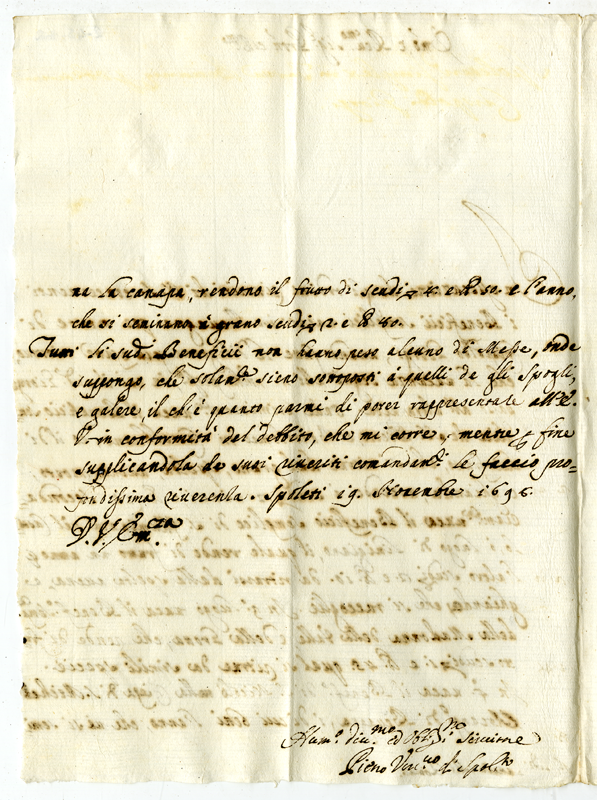 na la canapa, rendono il frutto di scudi 4 e b. 50. e l'anno,
che vi seminano il grano scudi 2. e b 80.
Tutti li sud.i Beneficii non hanno peso alcuno di Messe, onde
suppongo, che solam.te sieno sottoposti à quelli de gli Spogli,
e galere, il ch'è quanto parmi di poter rappresentare all'E.
V. in conformità del debbito, che mi corre, mentre p fine
supplicandola de suoi riveriti comandam.ti le faccio pro-
fondissima riverenza. Spoleti 19. Novembre 1696.
D. V. Em.za
Hum.o div.mo ed obblig.mo servitore
Vesc.vo di Spol.ti